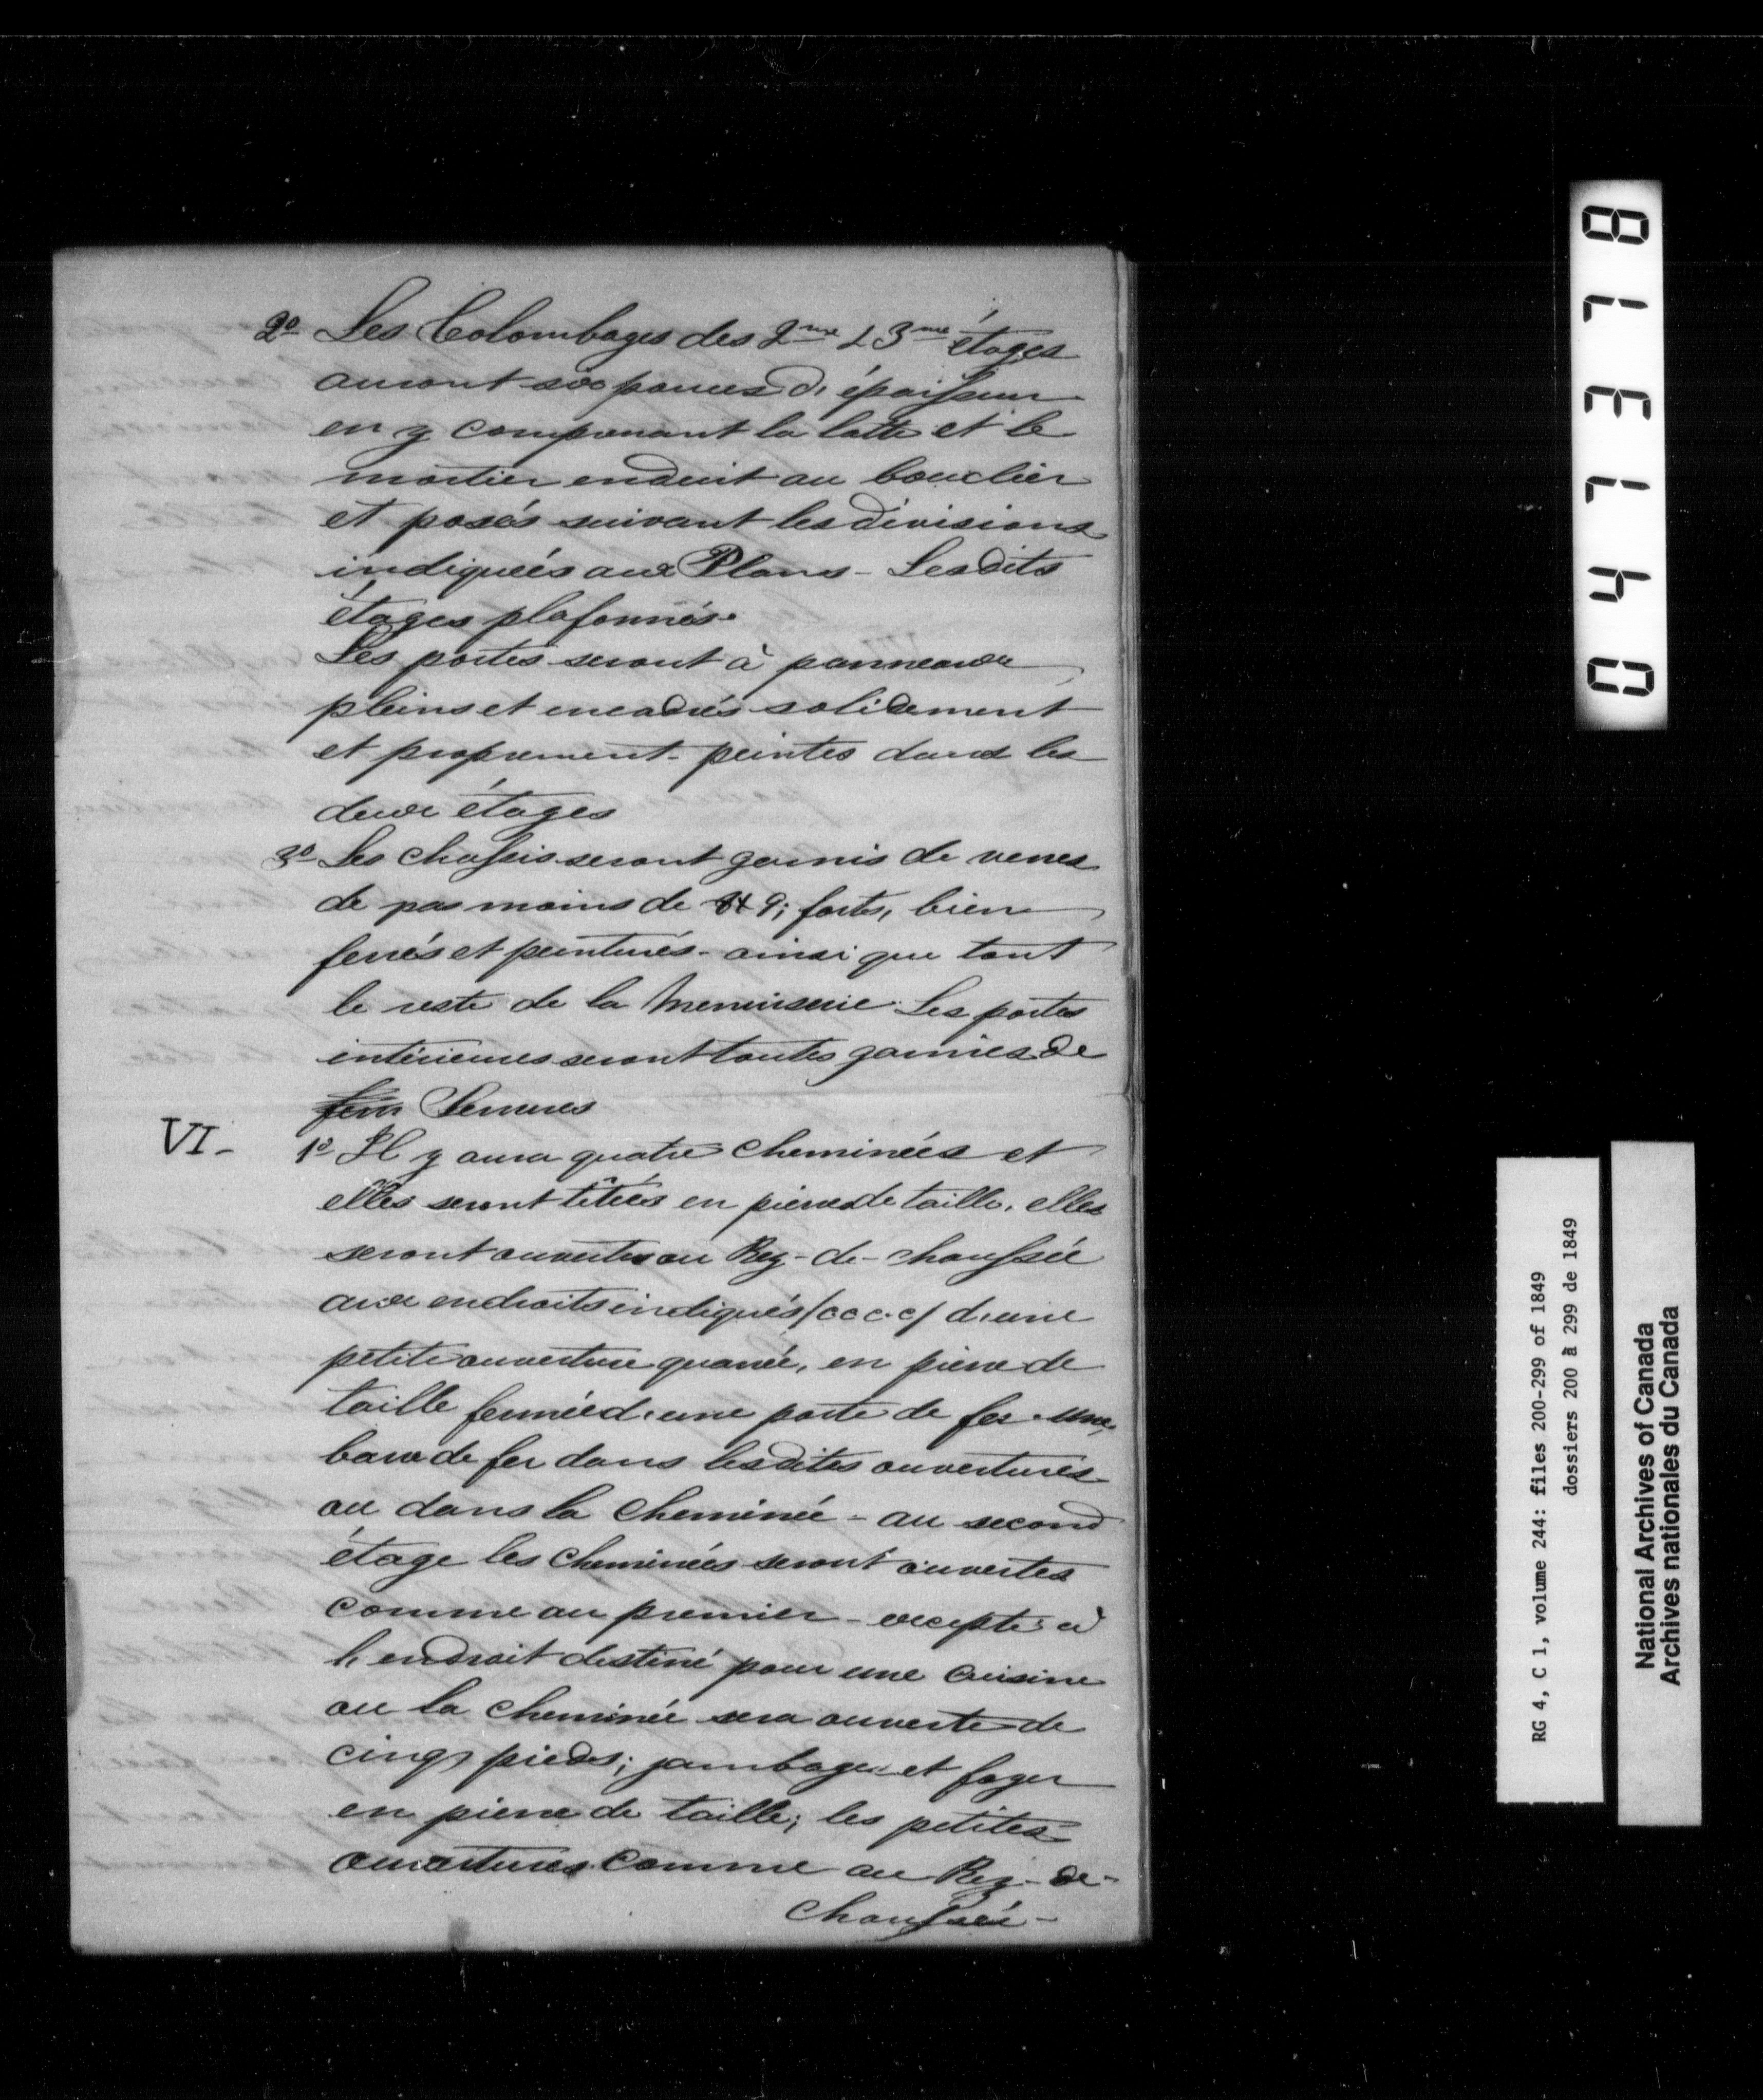 2º Les Colombages des 2me & 3me étages
auront six pouces d'épaisseur
en y comprenant la latte et le
mortier enduit au bouclier
et posés suivant les divisions
indiquées aux Plans - Les dits
étages plafonnés.
Les portes seront à panneaux
pleins et encadrés solidement
et proprement - peintes dans les
deux étages
3º Les chassis seront garnis de verres
de pas moins de 9; forts, bien
ferrés et peinturés - ainsi que tout
le reste de la Menuiserie. Les portes
intérieures seront toutes garnies de
Serrures
VI -
1º Il y aura quatre Cheminées et
elles seront têtées en pierre de taille, elles
seront ouvertes au Rez-de-chaussée
aux endroits indiqués /c c c. c/ d'une
petite ouverture quarrée, en pierre de
taille fermée d'une porte de fer. Une
barre de fer dans les dites ouvertures
ou dans la Cheminée - au second
étage les Cheminées seront ouvertes
comme au premier - excepté à
l'endroit destiné pour une Cuisine
ou la Cheminée sera ouverte de
cinq pieds; jambages et foyer
en pierre de taille; les petites
ouvertures comme au Rez-de-
Chaussée -
047378
RG 4, C 1, volume 244: files 200-299 of 1849
dossiers 200 à 299 de 1849
National Archives of Canada
Archives nationales du Canada